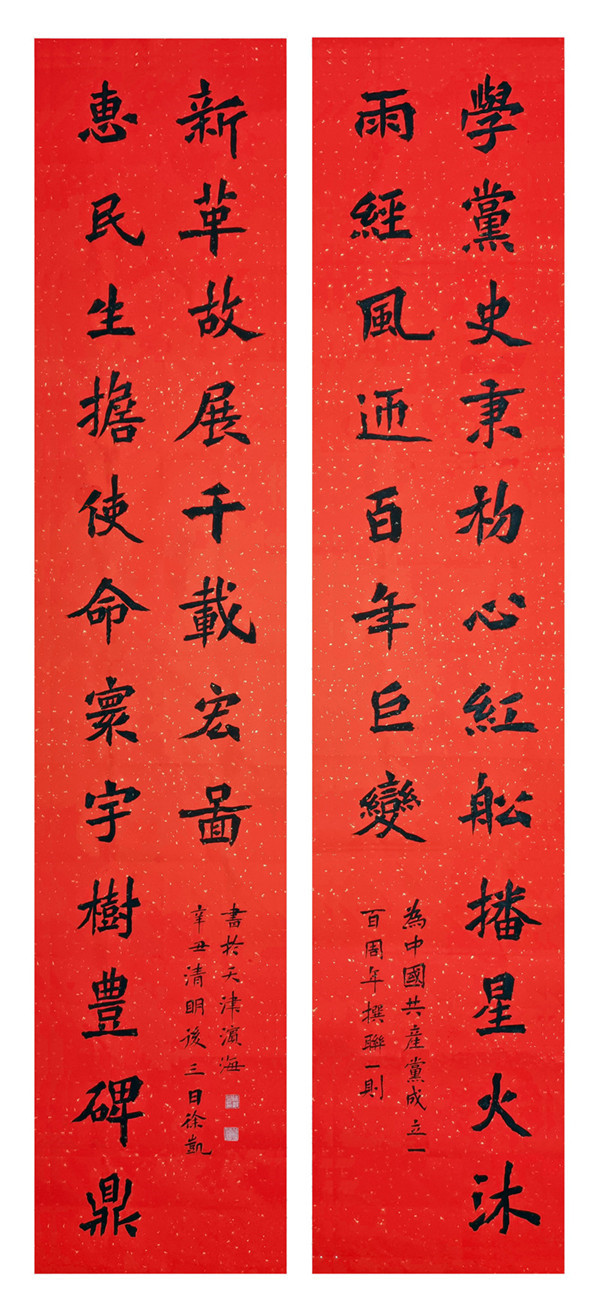 學黨史秉初心紅船播星火沐
雨經風迎百年巨變
為中國共產黨成立一
百周年撰聯一則
惠民生擔使命寰宇樹豊碑鼎
新革故展千載宏圖
辛丑清明後三日徐凱
書於天津濱海